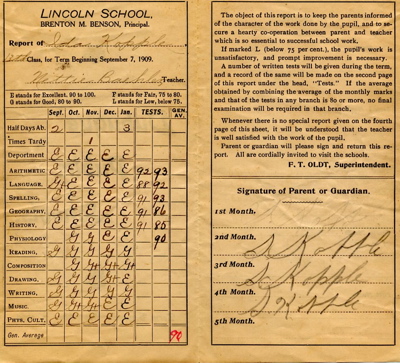 LINCOLN SCHOOL,
BRENTON M. BENSON, Principal.
Report of
Class, for Term Beginning September 7, 1909.
Teacher.
E stands for Excellent, 90 to 100. F stands for Fair, 75 to 80.
G stands for Good, 80 to 90. L stands for Low, below 75.
Sept. Oct. Nov. Dec. Jan. TESTS. GEN. AV.
Half Days Ab. 2 3
Times Tardy 1
Deportment E E E E E
ARITHMETIC E E E E E 92 93
LANGUAGE, G+ E E E E 88 92
SPELLING, E E E E E 91 93
GEOGRAPHY, E E E E E 91 86
HISTORY, E E E E E 91 85
PHYSIOLOGY G G E E 90
READING, G G G G G
COMPOSITION G G+ G+ G+
DRAWING, G G G G+ E
WRITING, G G G G G
MUSIC G+ G+ G+ E E
PHYS. CULT. E E E E E
Gen. Average 90
The object of this report is to keep the parents informed
of the character of the work done by the pupil, and to se-
cure a hearty co-operation between parent and teacher
which is so essential to successful school work.
If marked L (below 75 per cent.), the pupil's work is
unsatisfactory, and prompt improvement is necessary.
A number of written tests will be given during the term,
and a record of the same will be made on the second page
of this report under the head, "Tests." If the average
obtained by combining the average of the monthly marks
and that of the tests in any branch is 80 or more, no final
examination will be required in that branch.
Whenever there is no special report given on the fourth
page of this sheet, it will be understood that the teacher
is well satisfied with the work of the pupil.
Parent or guardian will please sign and return this re-
port. All are cordially invited to visit the schools.
F. T. OLDT, Superintendent.
Signature of Parent or Guardian.
1st Month.
2nd Month. S Kopple
3rd Month. S Kopple
4th Month. S Kopple
5th Month.